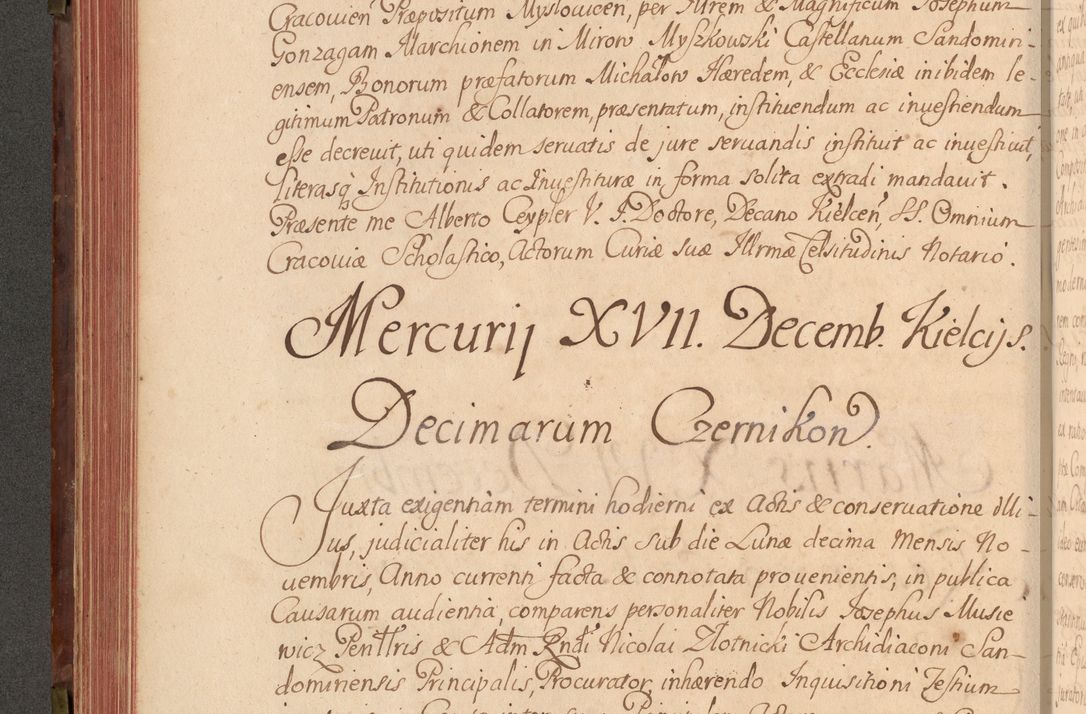 Cracovien Præpositum Myslovicen, per Illrem & Magnificum Josephum
Gonzagam Marchionem in Mirow Myszkowski Castellanum Sandomiri-
ensem, Bonorum præfatorum Michałow Hæredem, & Ecclesiæ inibidem le-
gitimum Patronum & Collatorem, præsentatum, instituendum ac investiendum
esse decrevit, uti quidem servatis de jure servandis instituit ac investivit,
literasq Institutionis ac Investituræ in forma solita extradi mandavit.
Præsente me Alberto Ceypler V. J. Doctore, Decano Kielcen, SS. Omnium
Cracoviæ Scholastico, Actorum Curiæ suæ Illrmæ Celsitudinis Notario.
Mercurij XVII. Decemb. Kielcijs.
Decimarum Czernikow.
Juxta exigentiam termini hodierni ex Actis & conservatione illi-
us, judicialiter his in Actis sub die Lunæ decima Mensis No-
vembris, Anno currenti facta & connotata provenientis, in publica
Causarum audientia, comparens personaliter Nobilis Josephus Musie
wicz Penttris & Adm Rndi Nicolai Złotnicki Archidiaconi San-
domiriensis Principalis, Procurator, inhærendo Inquisitioni Testium